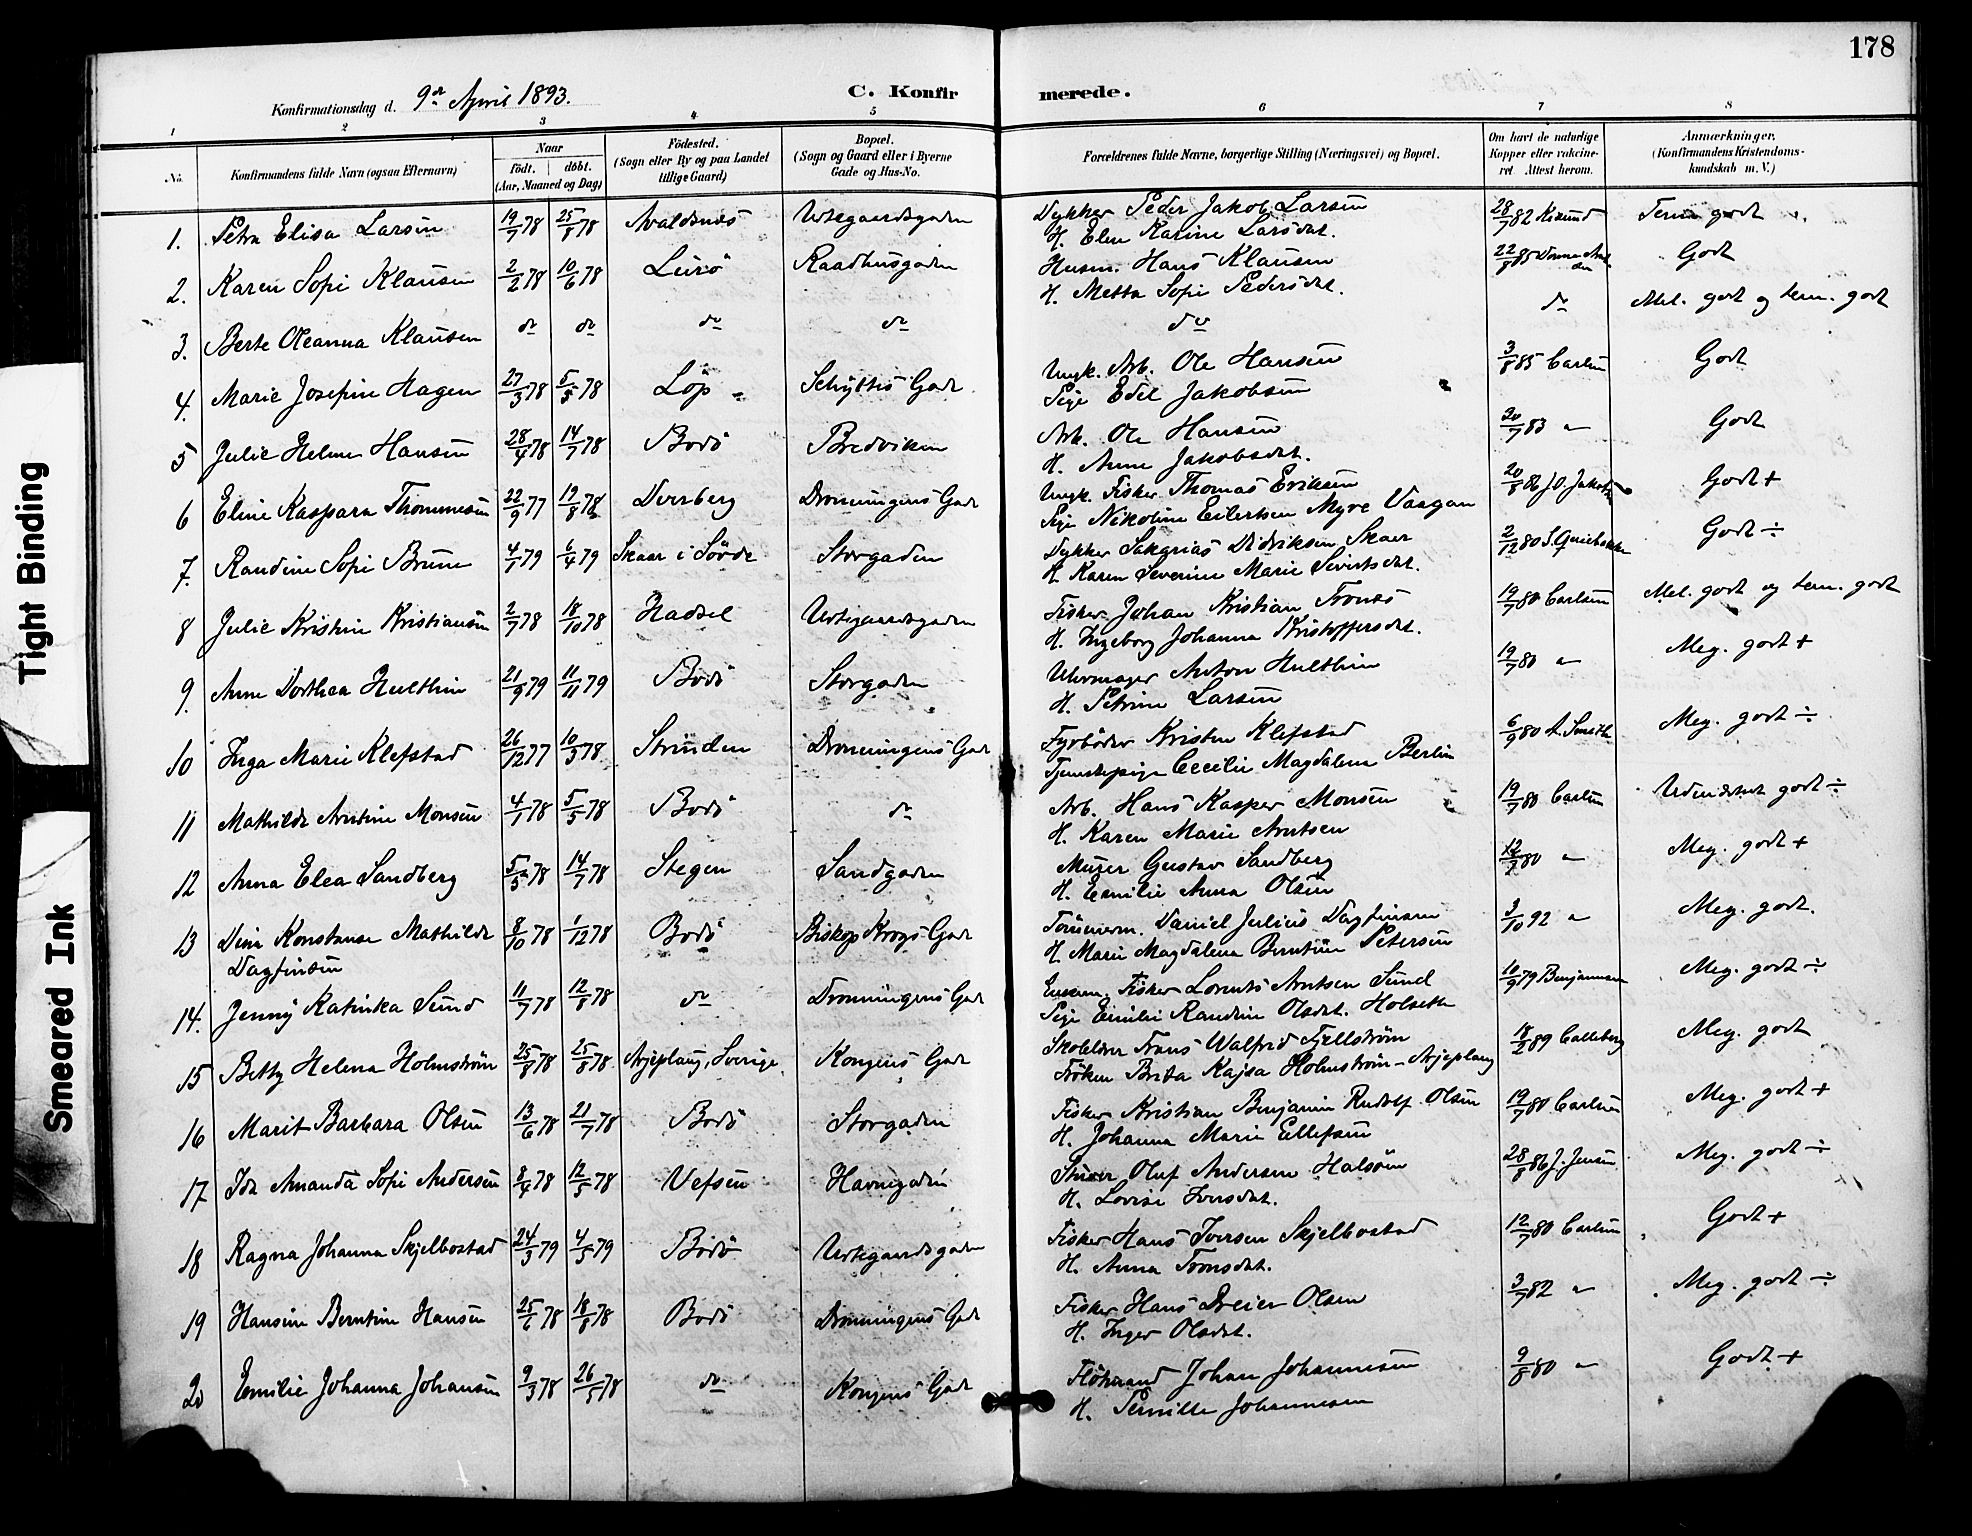 178
Konfirmationsdag d. 9de April 1893.
C. Konfirmerede.
1 2 3 4 5 6 7 8
No.
Konfirmandens fulde Navn (ogsaa Efternavn)
Naar
födt. döbt.
(Aar, Maaned og Dag)
Födested.
(Sogn eller By og paa Landet
tillige Gaard)
Bopæl.
(Sogn og Gaard eller i Byerne
Gade og Hus-No.
Forældrenes fulde Navne, borgerlige Stilling (Næringsvei) og Bopæl.
Om havt de naturlige
Kopper eller vakcine-
ret Attest herom.
Anmærkninger.
(Konfirmandens Kristendoms-
kundskab m. V.)
1. Petra Elisa Larsen 19/7 78 25/8 78 Avaldsnæs Urtegaardsgaden Dykker Peder Jakob Larsen 28/7 82 Tem. godt
H. Elen Karine Larsdat.
2. Karen Sofie Klausen 2/2 78 10/6 78 Lurö Raadhusgaden Husm. Hans Klausen 22/8 85 Godt
H. Metta Sofie Pedersdat.
3. Berte Oleanna Klausen do do do do do do Mel. godt og tem. godt
4. Marie Josefine Hagen 27/3 78 5/5 78 Löp Schyttes Gade Ungk. Arb. Ole Hansen 3/8 85 Carlsen Godt
Pige Edel Jakobsen
5 Julie Helene Hansen 28/4 78 14/7 78 Bodö Bredviken Arb. Ole Hansen 20/7 83 " Godt
H. Anne Jakobsdat.
6 Eline Kaspara Thommesen 22/9 77 19/8 78 Dverberg Dronningens Gade Ungk. Fisker Thomas Eriksen 20/8 86 J.O. Jakobsen Godt +
Pige Nikoline Eilertsen Myre Vaagan
7. Randine Sofie Bruun 4/1 79 6/4 79 Skaar i Sövde Storgaden Dykker Sakarias Didriksen Skaar 2/12 80 Godt ÷
H. Karen Severine Marie Sivertsdat.
8 Julie Kristine Kristiansen 2/7 78 18/10 78 Hadsel Urtegaardsgaden Fisker Johan Kristian Tronæs 19/7 80 Carlsen Mel. godt og tem. godt
H. Ingeborg Johanna Kristoffersdat.
9. Anne Dorthea Hulthin 21/9 79 11/11 79 Bodö Storgaden Uhrmager Anton Hulthin 19/7 80 " Meg. godt +
H. Petrine Larsen
10 Inga Marie Klefstad 26/12 77 10/3 78 Strinden Dronningens Gade Fyrböder Kristen Klefstad 6/9 80 A. Smith Meg. godt ÷
Tjenestepige Cecilie Magdalena Berlin
11 Mathilde Arntine Monsen 4/1 78 5/5 78 Bodö do Arb. Hans Kasper Monsen 19/7 80 Carlsen Udmærket godt ÷
H. Karen Marie Arntsen
12 Anna Elea Sandberg 5/5 78 14/7 78 Stegen Sandgaden Murer Gustav Sandberg 12/7 80 " Meg. godt +
H. Emilie Anna Olsen
13 Dina Konstanse Mathilde 8/10 78 1/12 78 Bodö Biskop Krogs Gade Tömmerm. Daniel Julius Dagfinsen 3/10 92 " Meg. godt.
Dagfinsen H. Marie Magdalena Berntine Petersen
14. Jenny Katinka Sund 11/7 78 12/8 78 do Dronningens Gade Enkem. Fisker Lorents Arntsen Sund 10/9 79 Benjaminsen Meg. godt ÷
Pige Emilie Randine Olsdat. Holseth
15 Betty Helena Holmström 25/8 78 25/8 78 Arjeplaug, Sverige Kongens Gade Skolelærer Frans Walfrid Fjellström 18/2 89 Calleberg Meg. godt
Fröken Brita Kajsa Holmström - Arjeplaug
16 Marit Barbara Olsen 13/6 78 21/7 78 Bodö Storgaden Fisker Kristian Benjamin Rudolf Olsen 19/7 80 Carlsen Meg. godt +
H. Johanna Marie Ellefsen
17 Ida Amanda Sofie Andersen 8/4 78 12/5 78 Vefsen Havnegaden Stuer Oluf Andersen Halsöen 28/8 86 J. Jensen Meg. godt ÷
H. Lovise Iversdat.
18 Ragna Johanna Skjelbostad 24/3 79 4/5 79 Bodö Urtegaardsgaden Fisker Hans Iversen Skjelbostad 12/7 80 Carlsen Godt +
H. Anna Tronsdat.
19 Hansine Berntine Hansen 25/6 78 18/8 78 Bodö Dronningens Gade Fisker Hans Dreier Olsen 3/7 82 " Meg. godt ÷
H. Inger Olsdat.
20 Emilie Johanna Johansen 9/3 78 26/5 78 do Kongens Gade Flötmand Johan Johannesen 9/8 80 " Godt +
H. Pernille Johannesen
Tight Binding
Smeared Ink